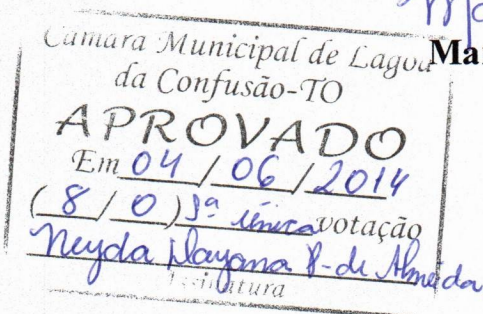 Câmara Municipal de Lagoa
Ma
da Confusão-TO
APROVADO
Em 04 / 06 / 2014
( 8 / 0 ) 1ª única votação
Neyda Dayana de Almeida
Assinatura